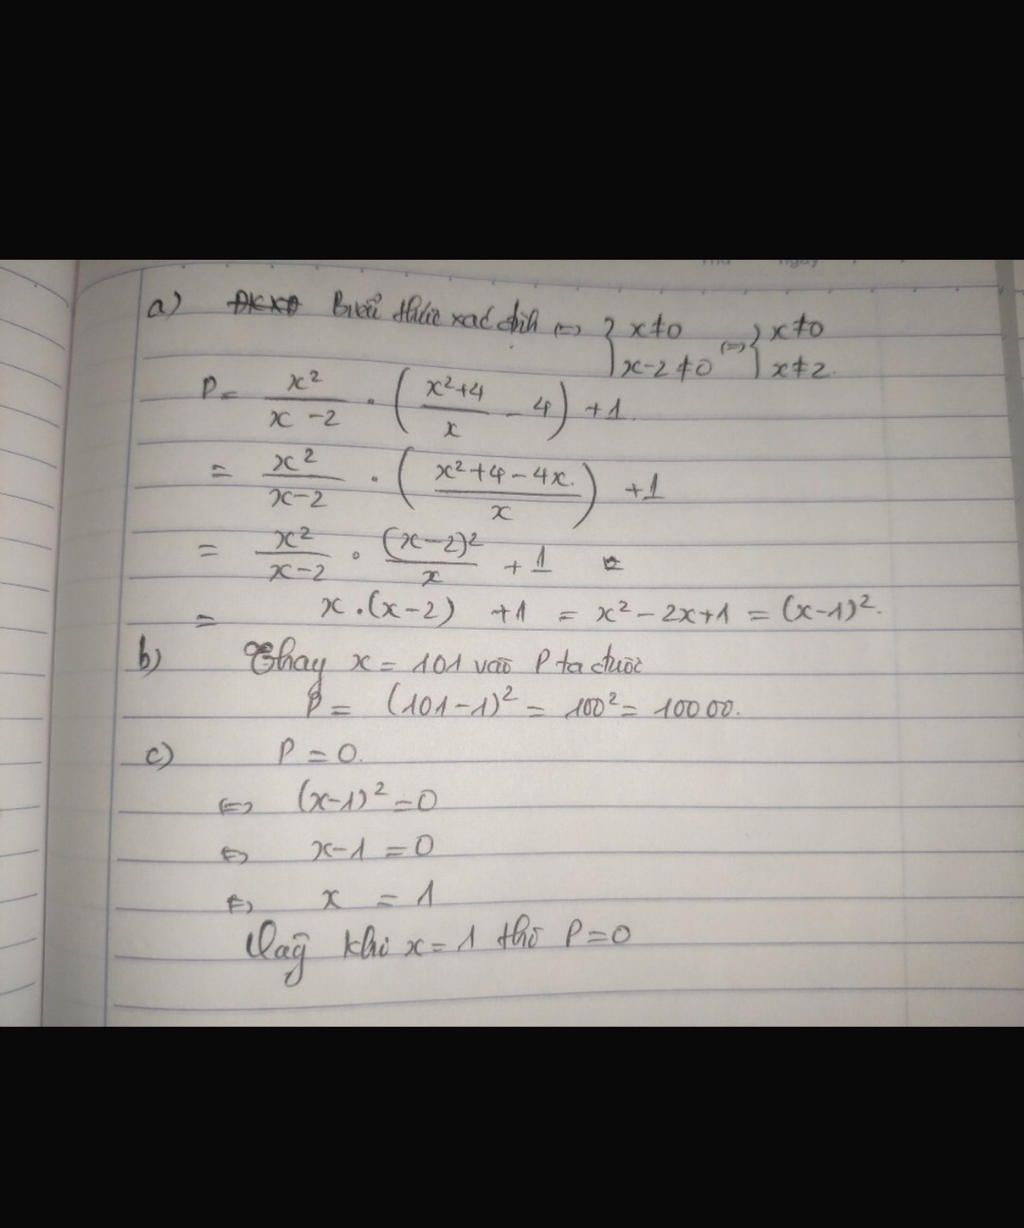 a) ĐKXĐ Biểu thức xác định <=> { x≠0 <=> { x≠0
x-2≠0 x≠2.
P = x²/(x-2) . ((x²+4)/x - 4) + 1.
= x²/(x-2) . ((x²+4-4x.)/x) + 1
= x²/(x-2) . (x-2)²/x + 1
= x.(x-2) + 1 = x²-2x+1 = (x-1)².
b) Thay x = 101 vào P ta được
P = (101-1)² = 100² = 10000.
c) P = 0.
<=> (x-1)² = 0
<=> x-1 = 0
<=> x = 1
Vậy khi x = 1 thì P = 0